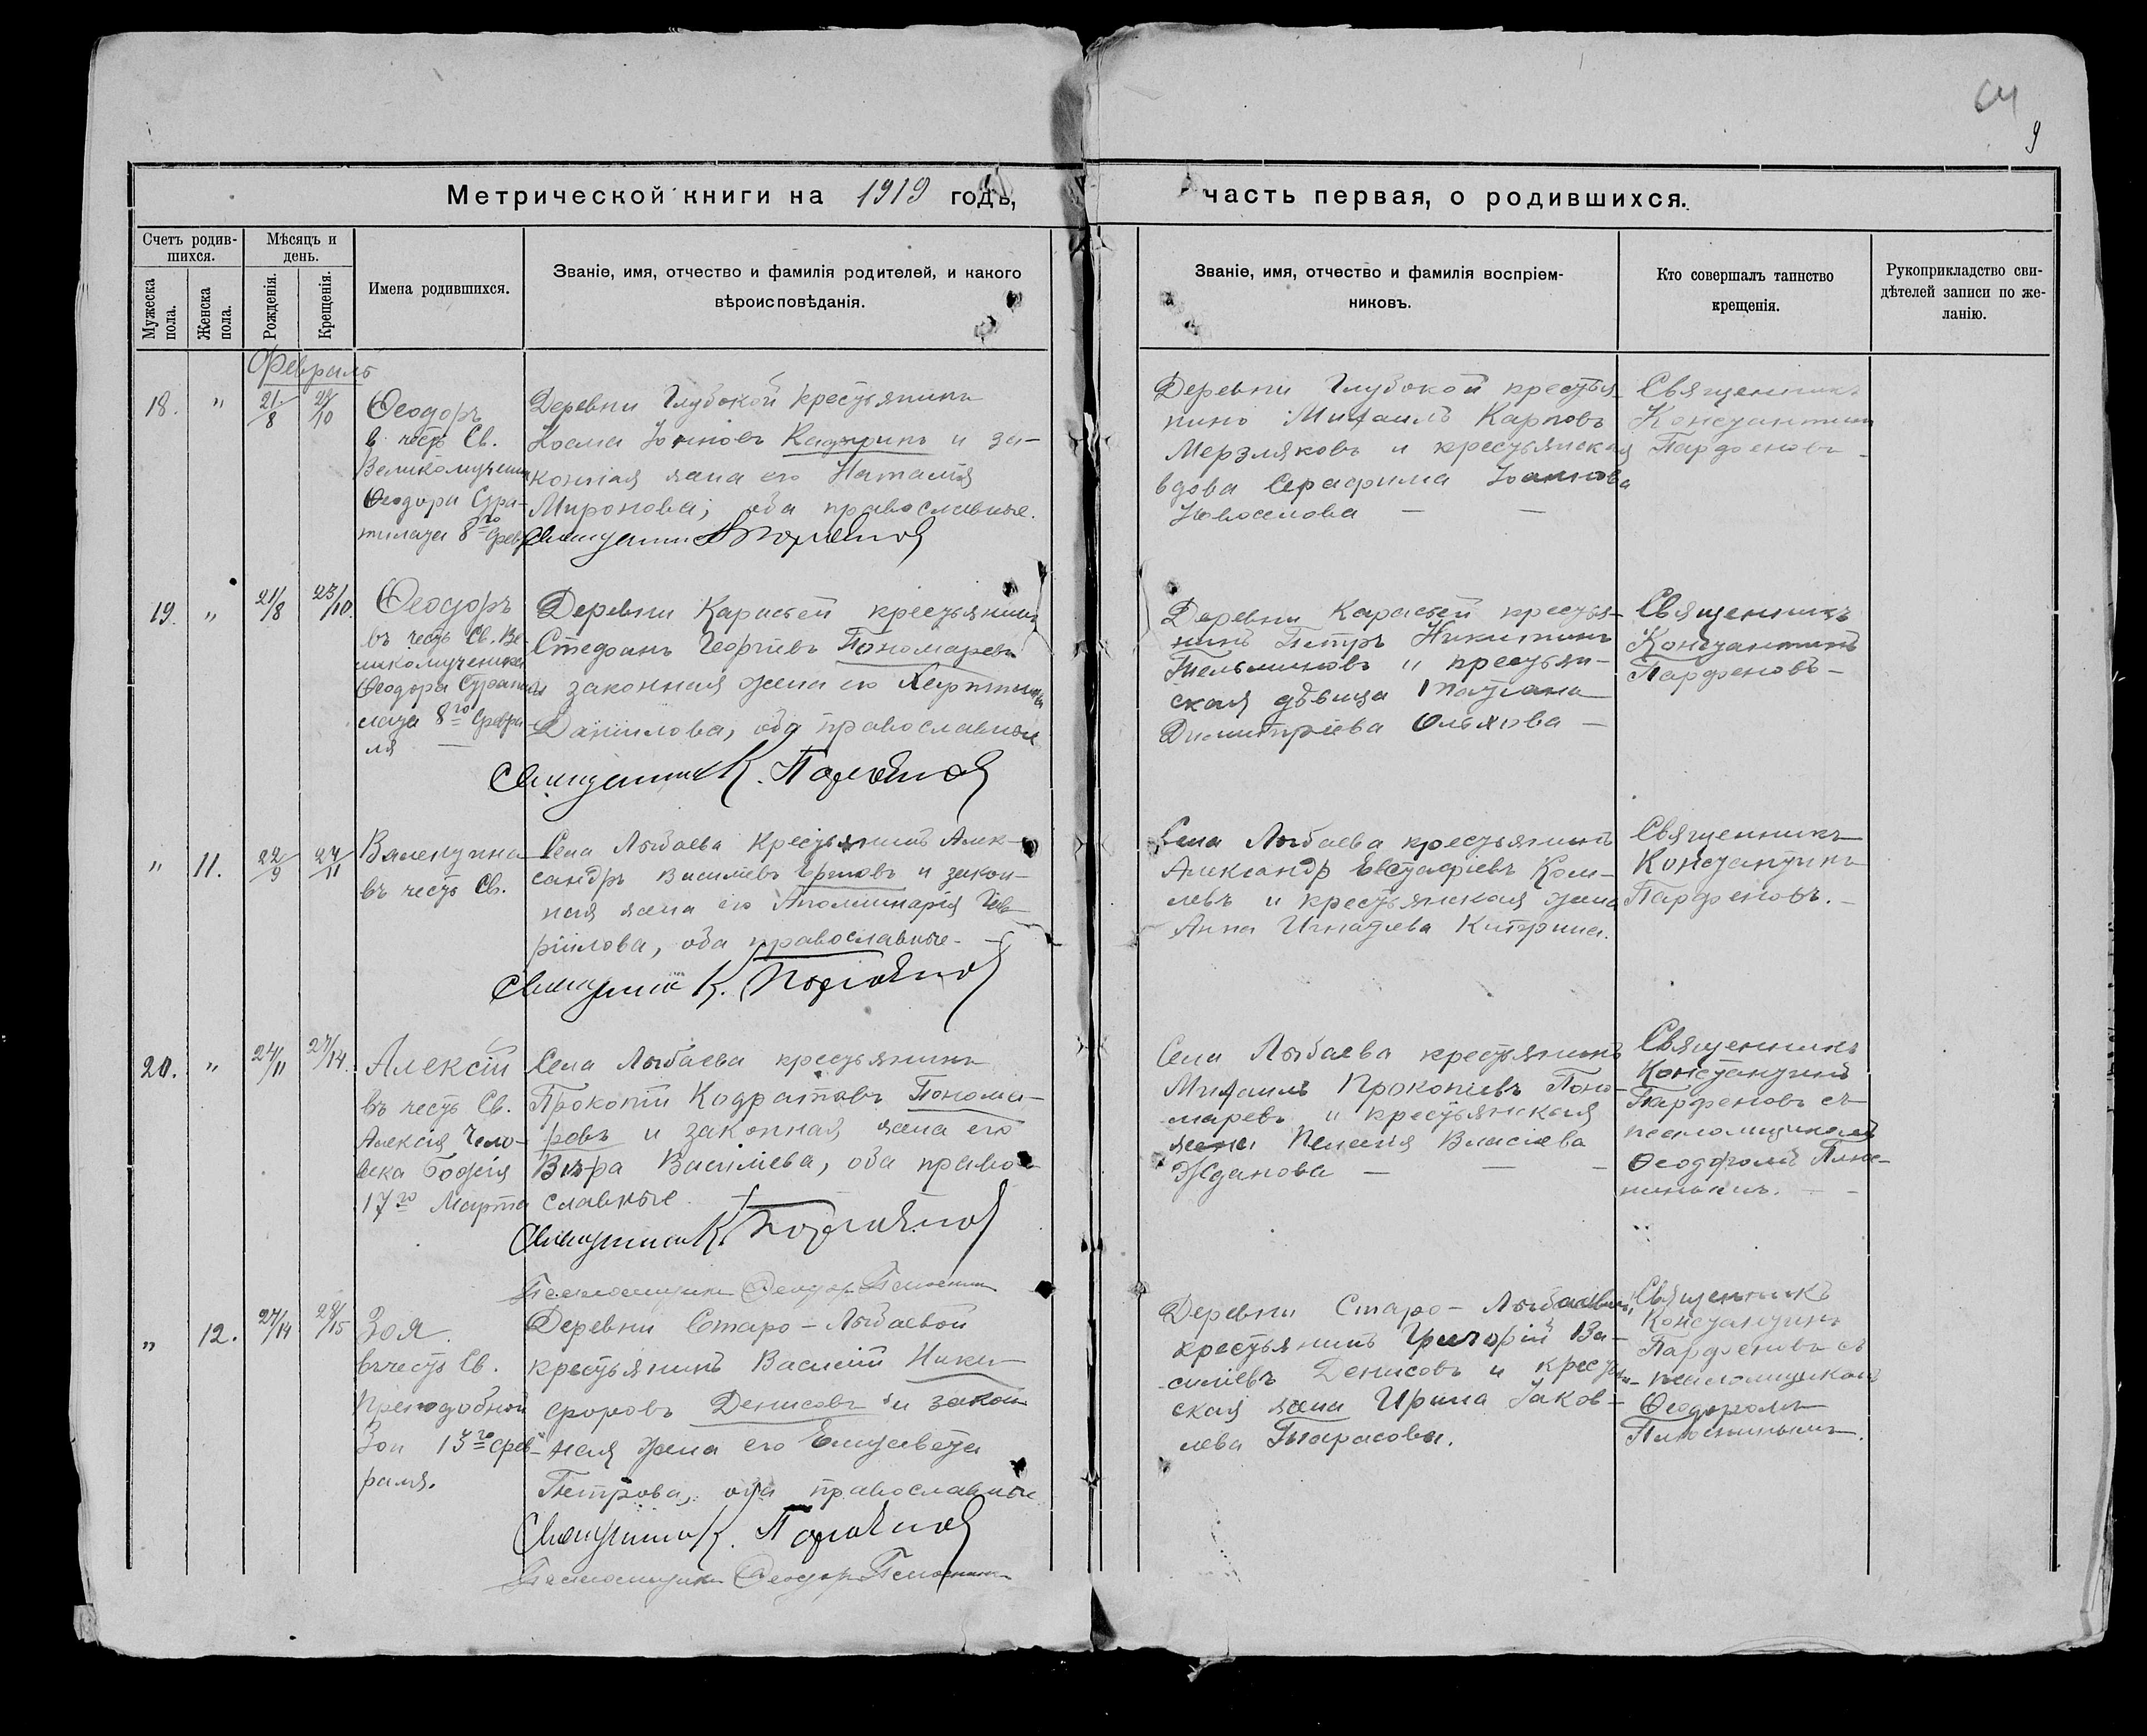 9
Метрической книги на 1919 годъ,
часть первая, о родившихся.
Счетъ родив-
шихся.
Мужеска
пола.
Женска
пола.
Мѣсяцъ и
день.
Рожденія.
Крещенія.
Имена родившихся.
Званіе, имя, отчество и фамилія родителей, и какого
вѣроисповѣданія.
Званіе, имя, отчество и фамилія воспріем-
никовъ.
Кто совершалъ таинство
крещенія.
Рукоприкладство сви-
дѣтелей записи по же-
ланію.
Февраль
18.
"
21/8
23/10
Ѳеодоръ
в честь Св.
Великомученика
Ѳеодора Стра-
тилата 8го Февр.
Деревни Глубокой крестьянинъ
Косма Іоанновъ и за-
конная жена его Наталія
Миронова, оба православные.
Священникъ К. Парфеновъ
Деревни Глубокой крестья-
нинъ Михаилъ Карповъ
Мерзляковъ и крестьянская
вдова Серафима Іоаннова
Новоселова — —
Священникъ
Константинъ
Парфеновъ —
19.
"
21/8
23/10.
Ѳеодоръ
въ честь Св. Ве-
ликомученика
Ѳеодора Страти-
лата 8го Февра-
ля —
Деревни Карасьей крестьянинъ
Стефанъ Георгіевъ Пономаревъ
и законная жена его
Даніилова, оба православные
Священникъ К. Парфеновъ
Деревни Карасьей крестья-
нинъ Петръ Никитинъ
и крестьян-
ская дѣвица Татіана
Димитріева Ольхова —
Священникъ
Константинъ
Парфеновъ —
"
11.
22/9
24/11
Валентина
въ честь Св.
Села Лыбаева крестьянинъ Алек-
сандръ Василіевъ и закон-
ная жена его Аполлинарія Гав-
ріилова, оба православные. —
Священникъ К. Парфеновъ
Села Лыбаева крестьянинъ
Александр Евстафіевъ
и крестьянская жена
Анна Игнатіева
Священникъ
Константинъ
Парфеновъ. —
20.
"
24/11
27/14.
Алексій
въ честь Св.
Алексія Чело-
вѣка Божія
17го Марта
Села Лыбаева крестьянинъ
Прокопій Кодратовъ Понома-
ревъ и законная жена его
Вѣра Василіева, оба право-
славные.
Священникъ К. Парфеновъ
Псаломщикъ Ѳеодоръ Плюснинъ
Села Лыбаева крестьянинъ
Михаилъ Прокопіевъ Поно-
маревъ и крестьянская
жена Пелагія Власіева
Жданова — — —
Священникъ
Константинъ
Парфеновъ съ
псаломщикомъ
Ѳеодоромъ Плюс-
нинымъ. — —
"
12.
27/14
28/15
Зоя.
въ честь Св.
Преподобной
Зои 13го Фев-
раля.
Деревни Старо-Лыбаевой
крестьянинъ Василій Ники-
форовъ Денисовъ и закон-
ная жена его Елисавета
Петрова, оба православные
Священникъ К. Парфеновъ
Псаломщикъ Ѳеодоръ Плюснинъ
Деревни Старо-Лыбаевой,
крестьянинъ Григорій Ва-
силіевъ Денисовъ и крестьян-
ская жена Ирина Іаков-
лева Тарасова.
Священникъ
Константинъ
Парфеновъ съ
псаломщикомъ
Ѳеодоромъ
Плюснинымъ.